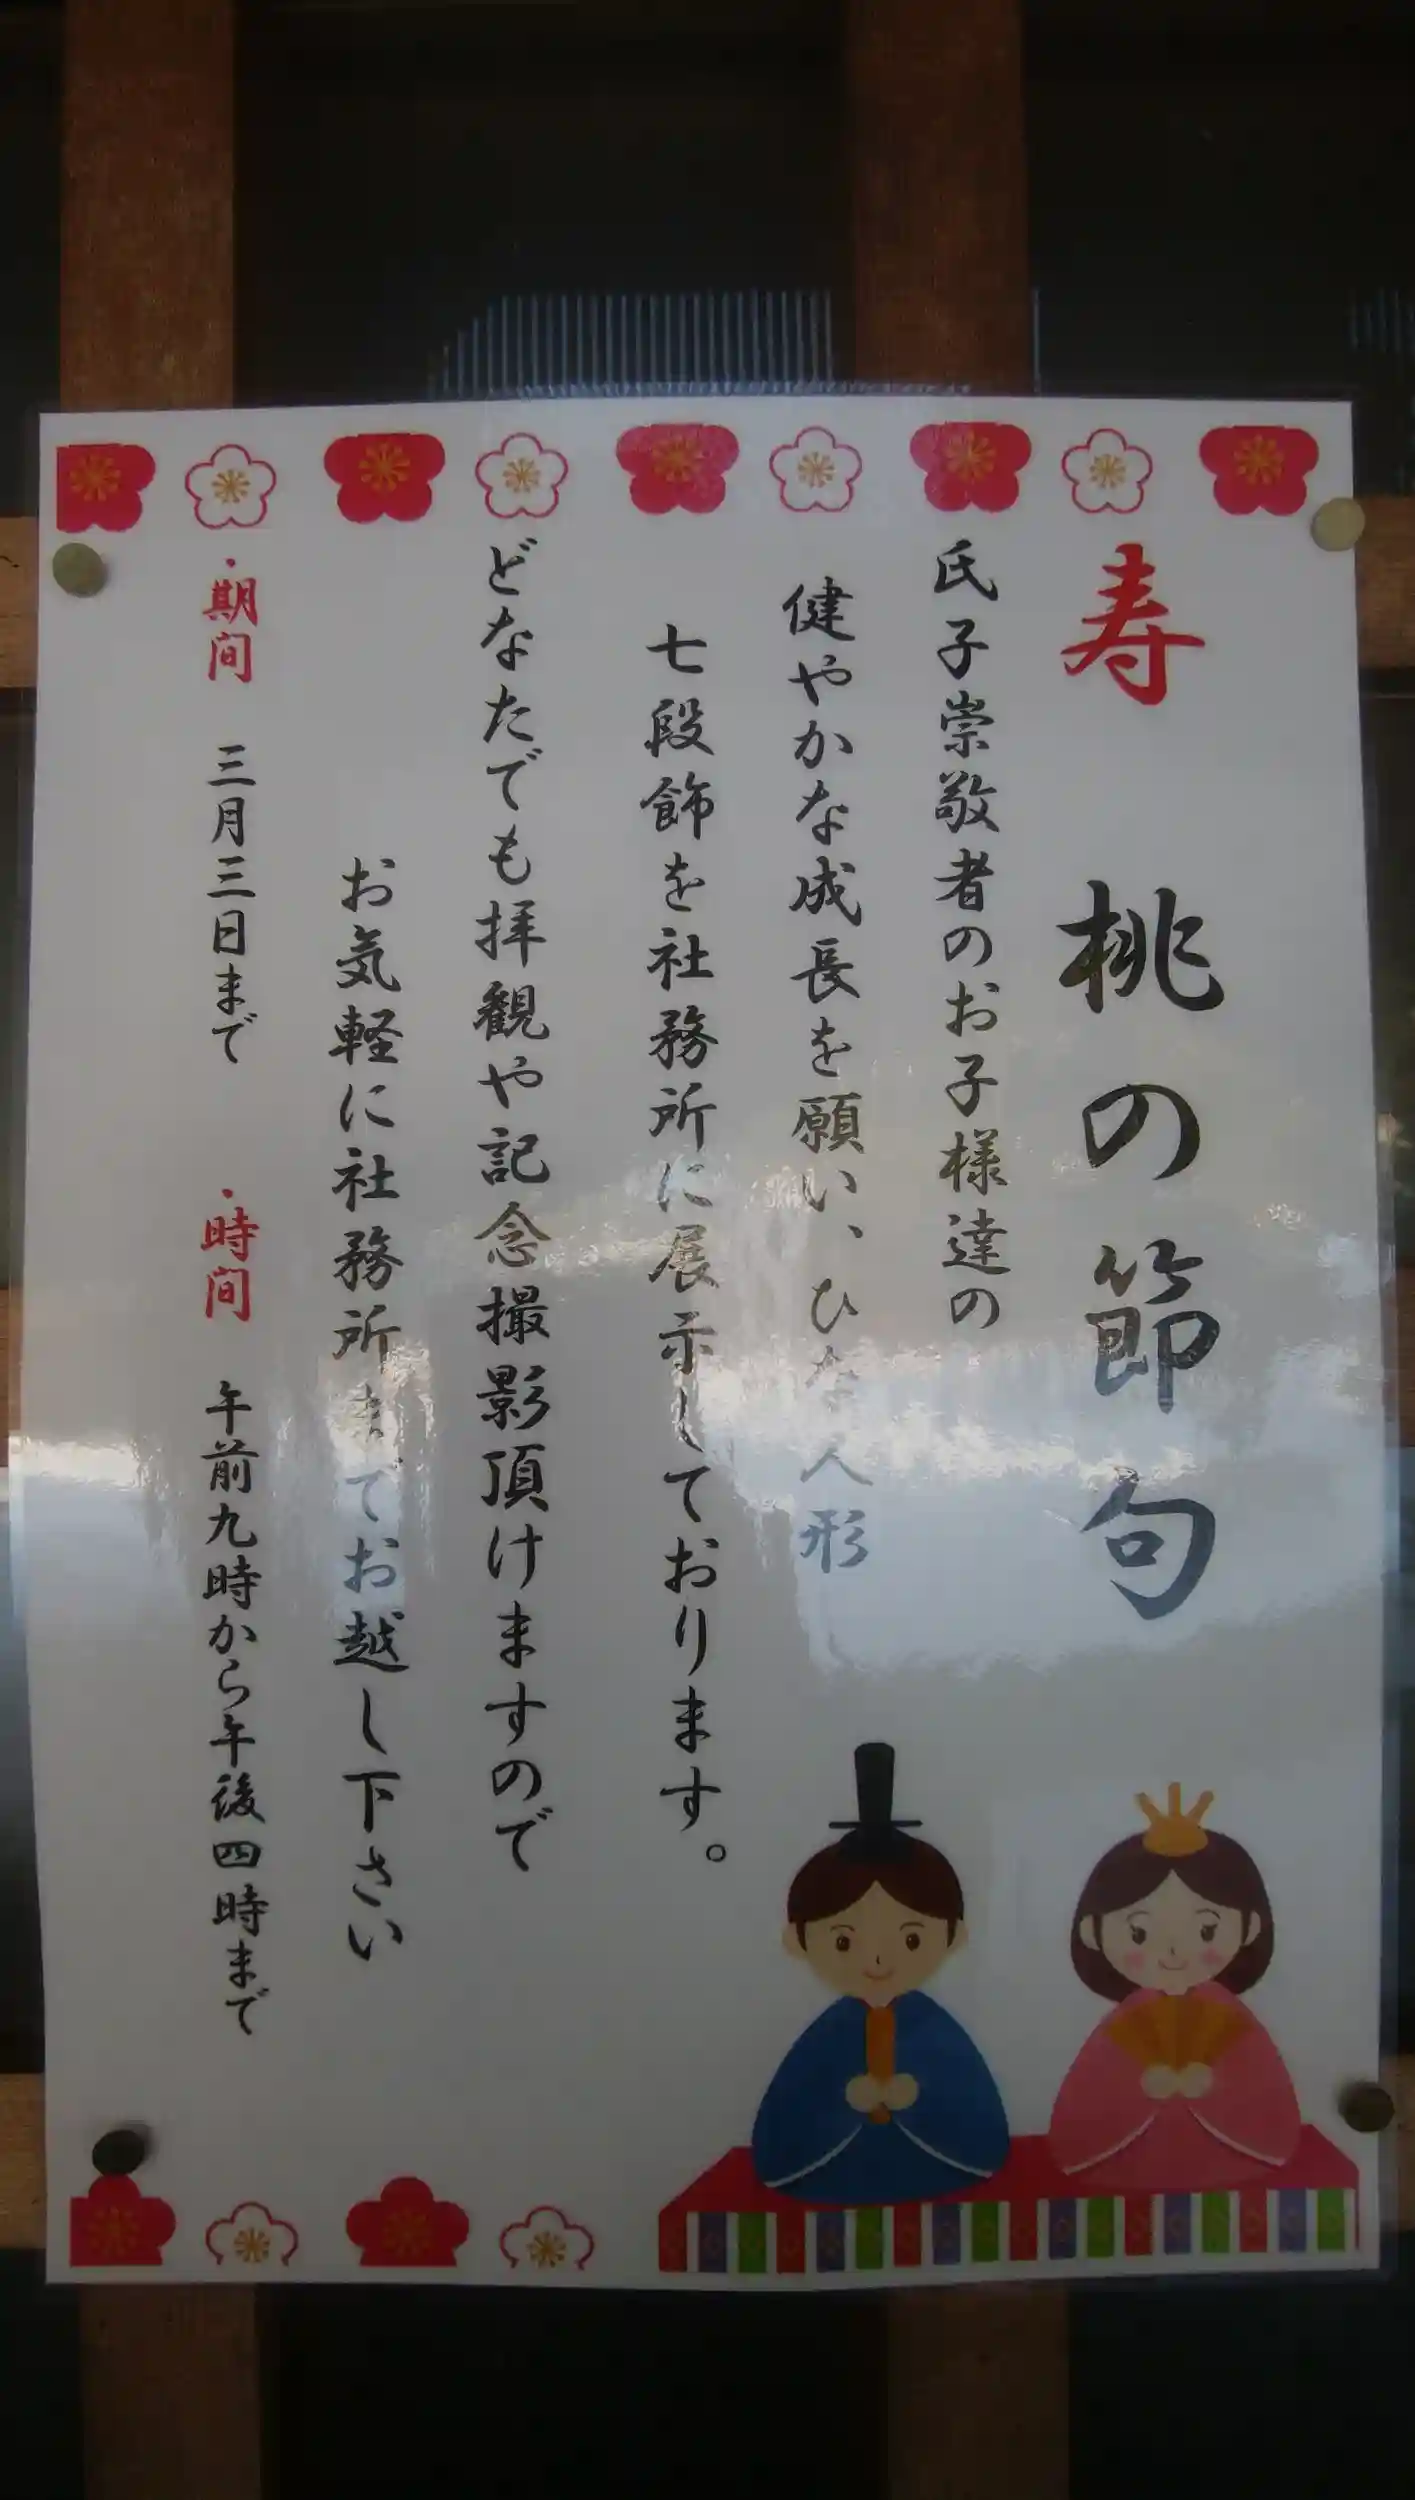 寿 桃の節句
氏子崇敬者のお子様達の
健やかな成長を願い、ひな人形
七段飾を社務所に展示しております。
どなたでも拝観や記念撮影頂けますので
お気軽に社務所までお越し下さい
・期間 三月三日まで ・時間 午前九時から午後四時まで